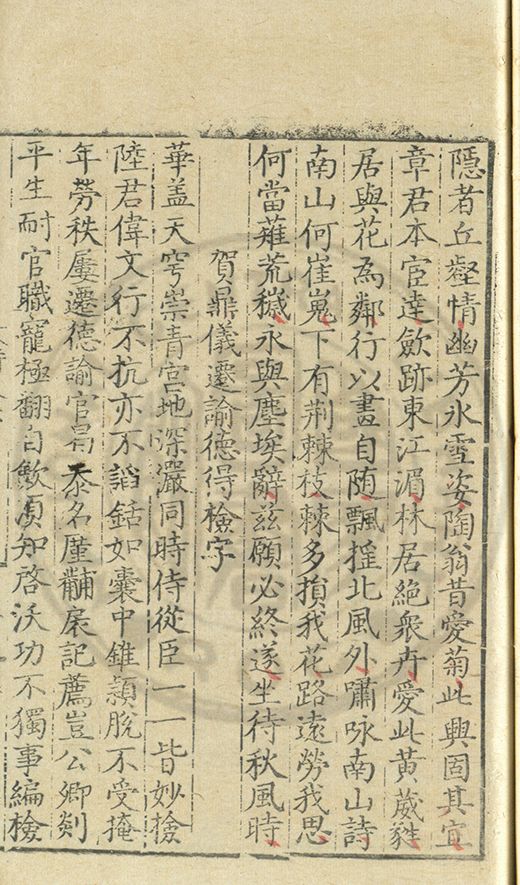 隱者丘壑情幽芳氷雪姿陶翁昔愛菊此興固其宜
章君本宦達歛跡東江湄林居絶衆卉愛此黄葳蕤
居與花為鄰行以畫自随飄揺北風外嘯咏南山詩
南山何崔嵬下有荆棘枝棘多損我花路遠勞我思
何當薙荒穢永與塵埃辭兹願必終遂坐待秋風時
賀鼎儀遷諭德得檢字
華盖天穹崇青宫地深嚴同時侍從臣一一皆妙檢
陸君偉文行不抗亦不謟銛如囊中錐頴脫不受掩
年勞秩屢遷德諭官曷忝名厪黼扆記薦豈公卿剡
平生耐官職寵極翻自歉須知啓沃功不獨事編檢